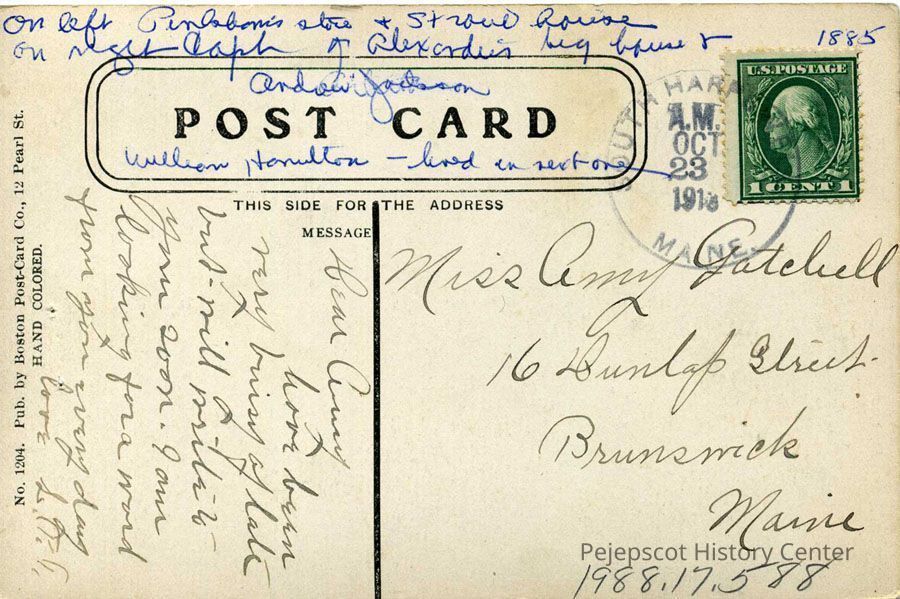 On left store & Stroud house
on right Capt of big house & 1885
Andrew Jackson
POST CARD
William Hamilton – lived in next one
U.S. POSTAGE
1 CENT 1
SOUTH HAR
A.M.
OCT
23
MAINE
THIS SIDE FOR THE ADDRESS
MESSAGE
No. 1204. Pub. by Boston Post-Card Co., 12 Pearl St.
HAND COLORED.
Dear Amy
have been
very busy of late
but will write to
you soon. I am
looking for a word
from you every day
love
Miss Amy Gatchell
16 Dunlap Street
Brunswick
Maine
Pejepscot History Center
1988.17.588